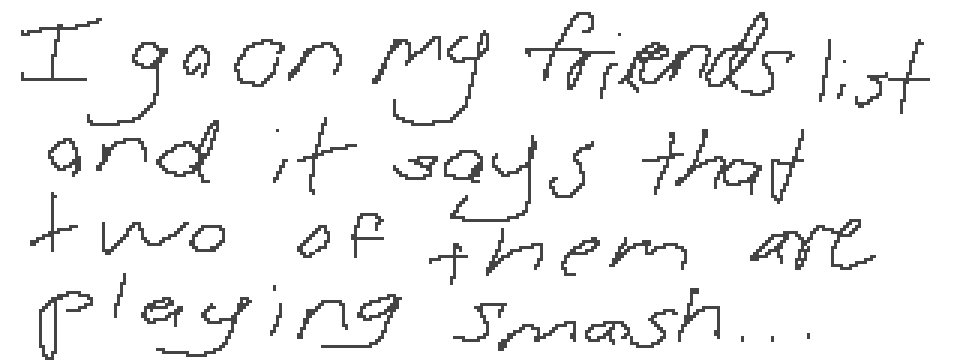 I go on my friends list
and it says that
two of them are
playing smash...